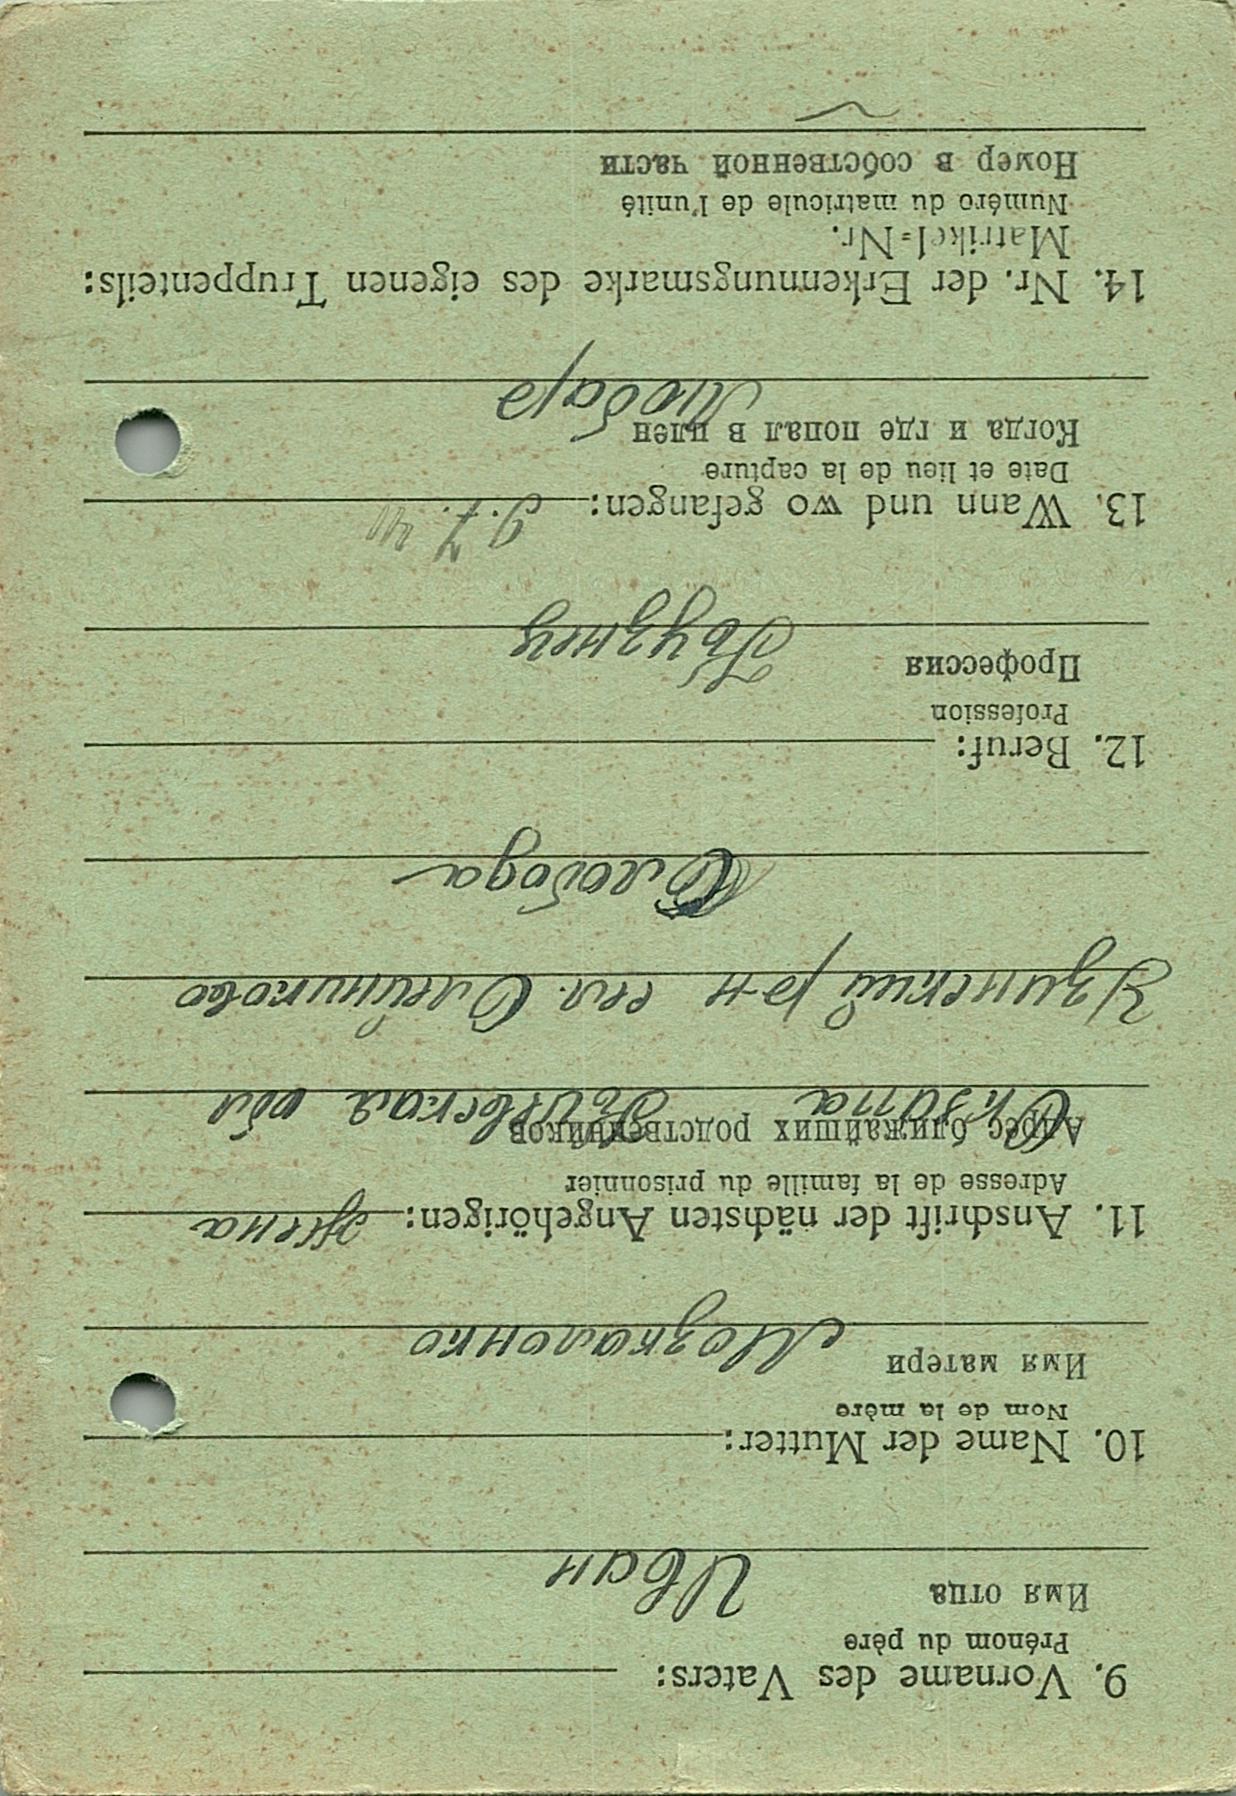 9. Vorname des Vaters:
Prénom du père
Имя отца
Иван
10. Name der Mutter:
Nom de la mère
Имя матери
Мозкаленко
11. Anschrift der nächsten Angehörigen: жена
Adresse de la famille du prisonnier
Адрес ближайших родственников
Киевская обл
Узинский р-н сел. Олейниково
Слобода
12. Beruf:
Profession
Профессия
Кузнец
13. Wann und wo gefangen: 9.7.41
Date et lieu de la capture
Когда и где попал в плен
Любар
14. Nr. der Erkennungsmarke des eigenen Truppenteils:
Matrikel-Nr.
Numéro du matricule de l'unité
Номер в собственной части